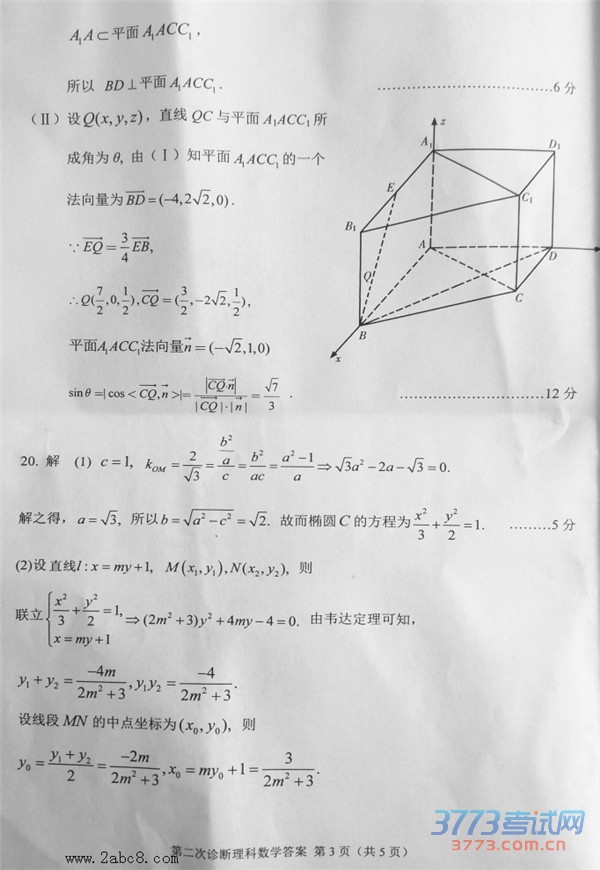 A₁A⊂平面A₁ACC₁，
所以 BD⊥平面A₁ACC₁. ………………………………6分
（Ⅱ）设Q(x,y,z)，直线QC与平面A₁ACC₁所
成角为θ, 由（Ⅰ）知平面A₁ACC₁的一个
法向量为\overrightarrow{BD}=(-4,2√2,0).
∵\overrightarrow{EQ}=\frac{3}{4}\overrightarrow{EB},
∴Q(\frac{7}{2},0,\frac{1}{2}),\overrightarrow{CQ}=(\frac{3}{2},-2√2,\frac{1}{2}),
平面A₁ACC₁法向量\vec{n}=(-√2,1,0)
sinθ=|cos<\overrightarrow{CQ},\vec{n}>|=\frac{|\overrightarrow{CQ}·\vec{n}|}{|\overrightarrow{CQ}|·|\vec{n}|}=\frac{√7}{3}. ………………………………12分
z
A₁
D₁
E
C₁
B₁
A
D
Q
C
B
x
20. 解 (1) c=1, k_{OM}=\frac{2}{√3}=\frac{\frac{b²}{a}}{c}=\frac{b²}{ac}=\frac{a²-1}{a}⇒√3a²-2a-√3=0.
解之得，a=√3, 所以b=√{a²-c²}=√2. 故而椭圆C的方程为\frac{x²}{3}+\frac{y²}{2}=1. ………5分
(2)设直线l:x=my+1, M(x₁,y₁),N(x₂,y₂), 则
联立{\frac{x²}{3}+\frac{y²}{2}=1, x=my+1 ⇒(2m²+3)y²+4my-4=0. 由韦达定理可知，
y₁+y₂=\frac{-4m}{2m²+3},y₁y₂=\frac{-4}{2m²+3}.
设线段MN的中点坐标为(x₀,y₀), 则
y₀=\frac{y₁+y₂}{2}=\frac{-2m}{2m²+3},x₀=my₀+1=\frac{3}{2m²+3}.
3773考试网
www.2abc8.com
第二次诊断理科数学答案 第3页（共5页）
3773.com.cn